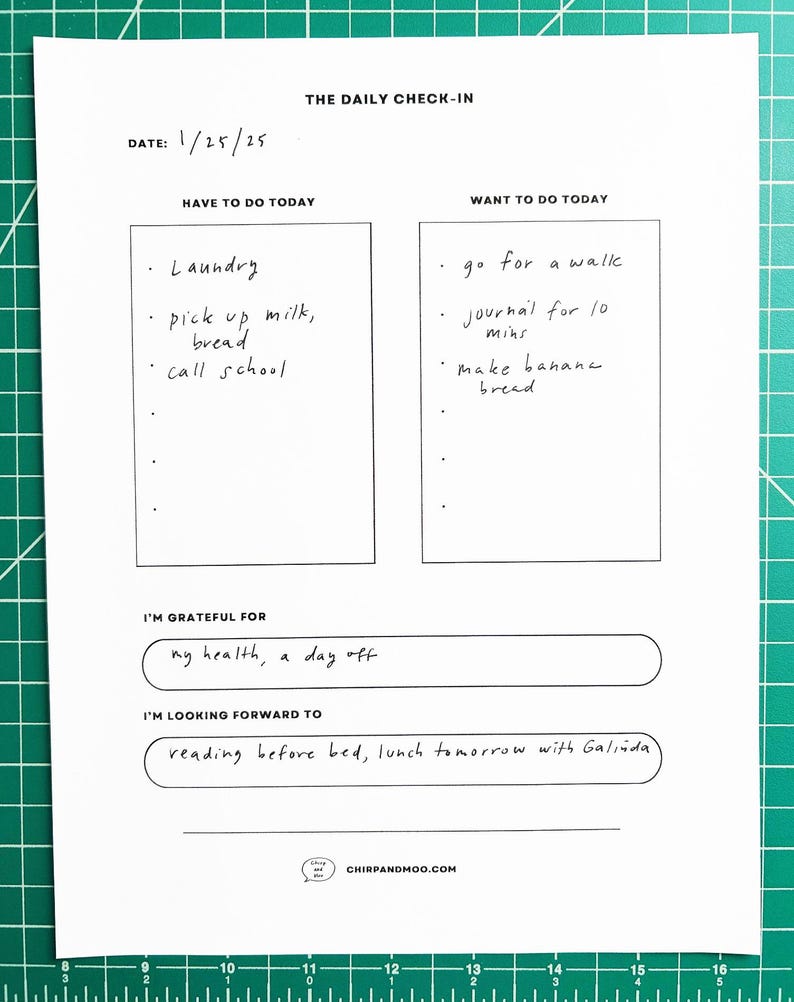 THE DAILY CHECK-IN
DATE: 1/25/25
HAVE TO DO TODAY
· Laundry
· pick up milk,
bread
· call school
·
·
·
WANT TO DO TODAY
· go for a walk
· journal for 10
mins
· make banana
bread
·
·
·
I'M GRATEFUL FOR
my health, a day off
I'M LOOKING FORWARD TO
reading before bed, lunch tomorrow with Galinda
Chirp
and
Moo
CHIRPANDMOO.COM
8 9 10 11 12 13 14 15 16
3 2 1 0 1 2 3 4 5